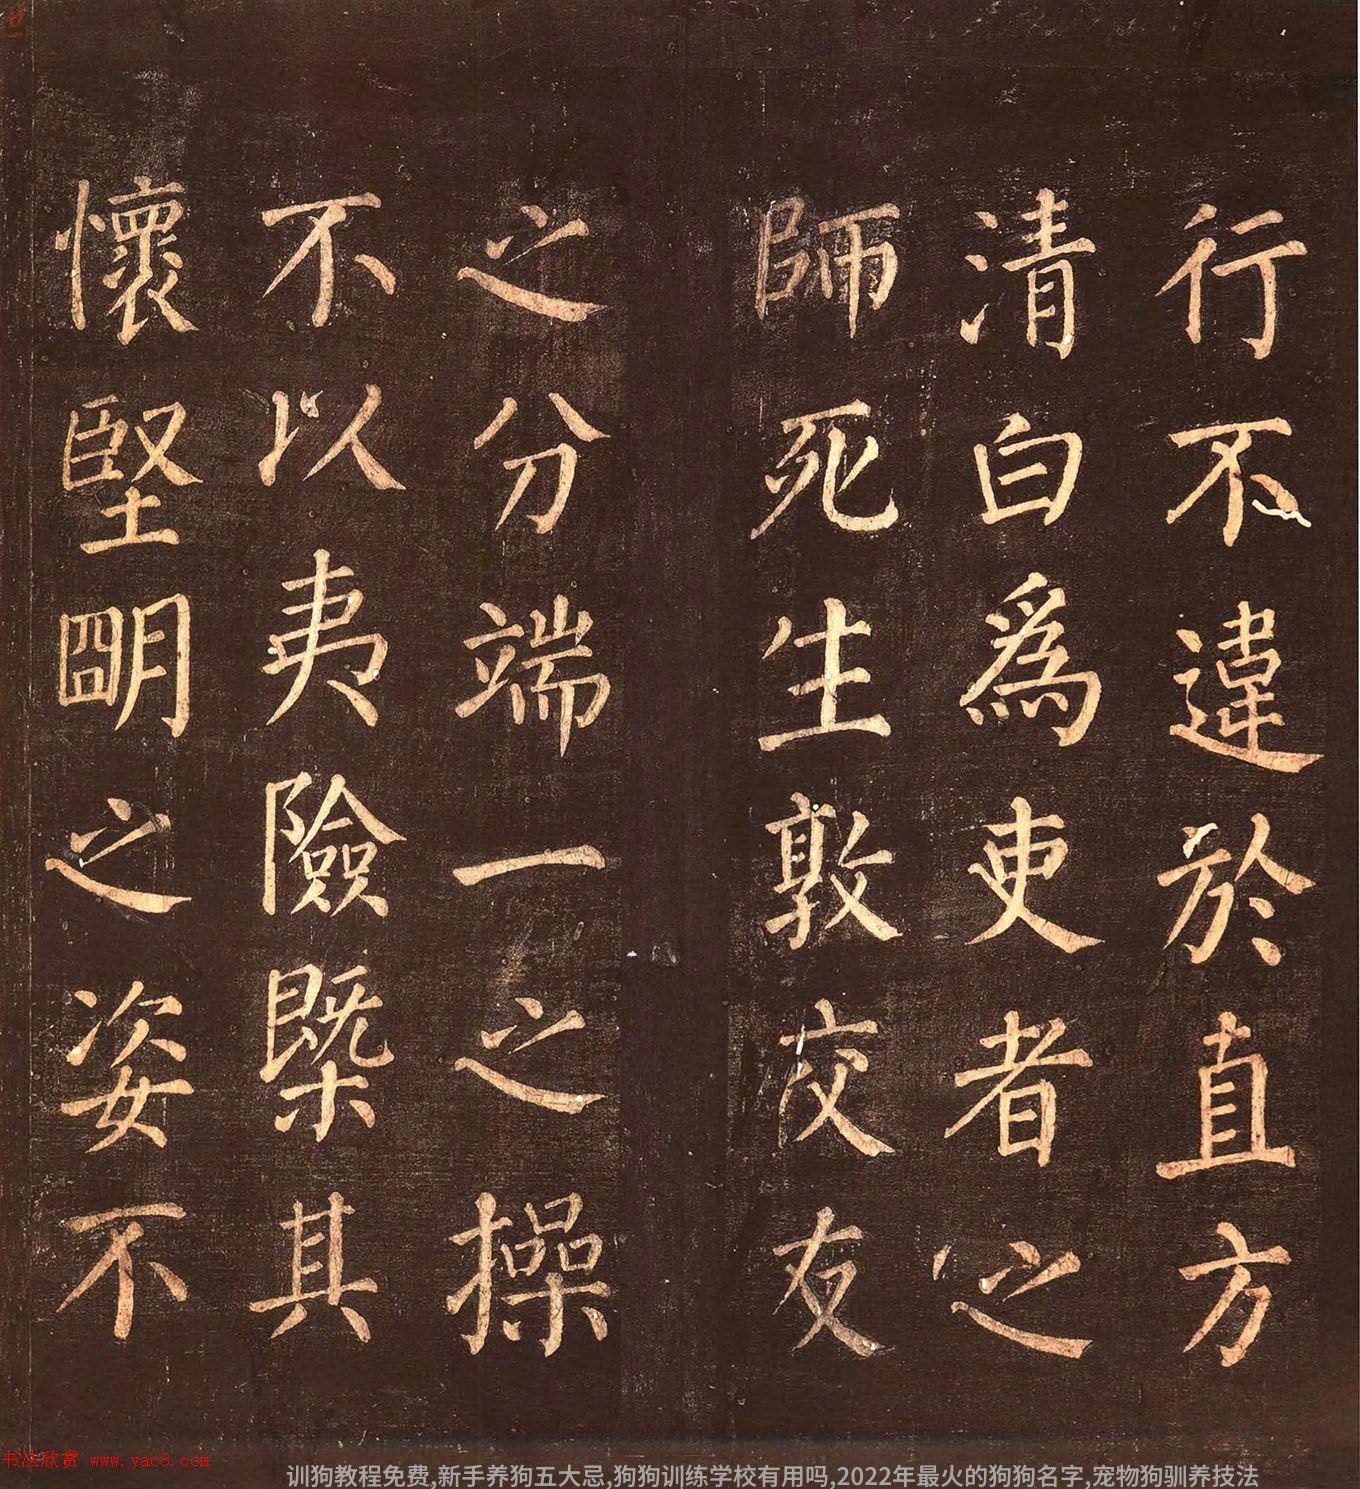 行不違於直方
清白為吏者之
師死生敦交友
之分端一之操
不以夷險槩其
懷堅明之姿不
书法欣赏 www.yac8.com
训狗教程免费,新手养狗五大忌,狗狗训练学校有用吗,2022年最火的狗狗名字,宠物狗驯养技法